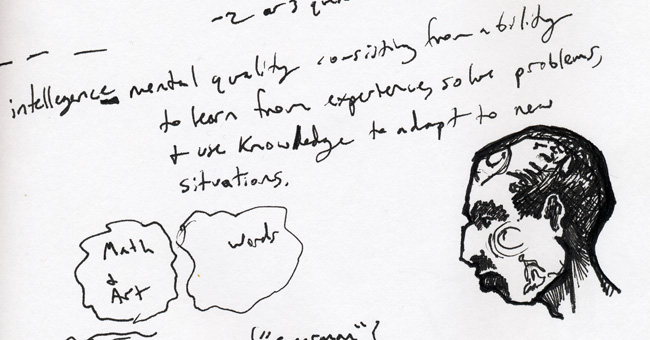 -2 or 3
intellegence mental quality consisting from ability
to learn from experience, solve problems,
& use knowledge to adapt to new
situations.
Math
&
Art
words